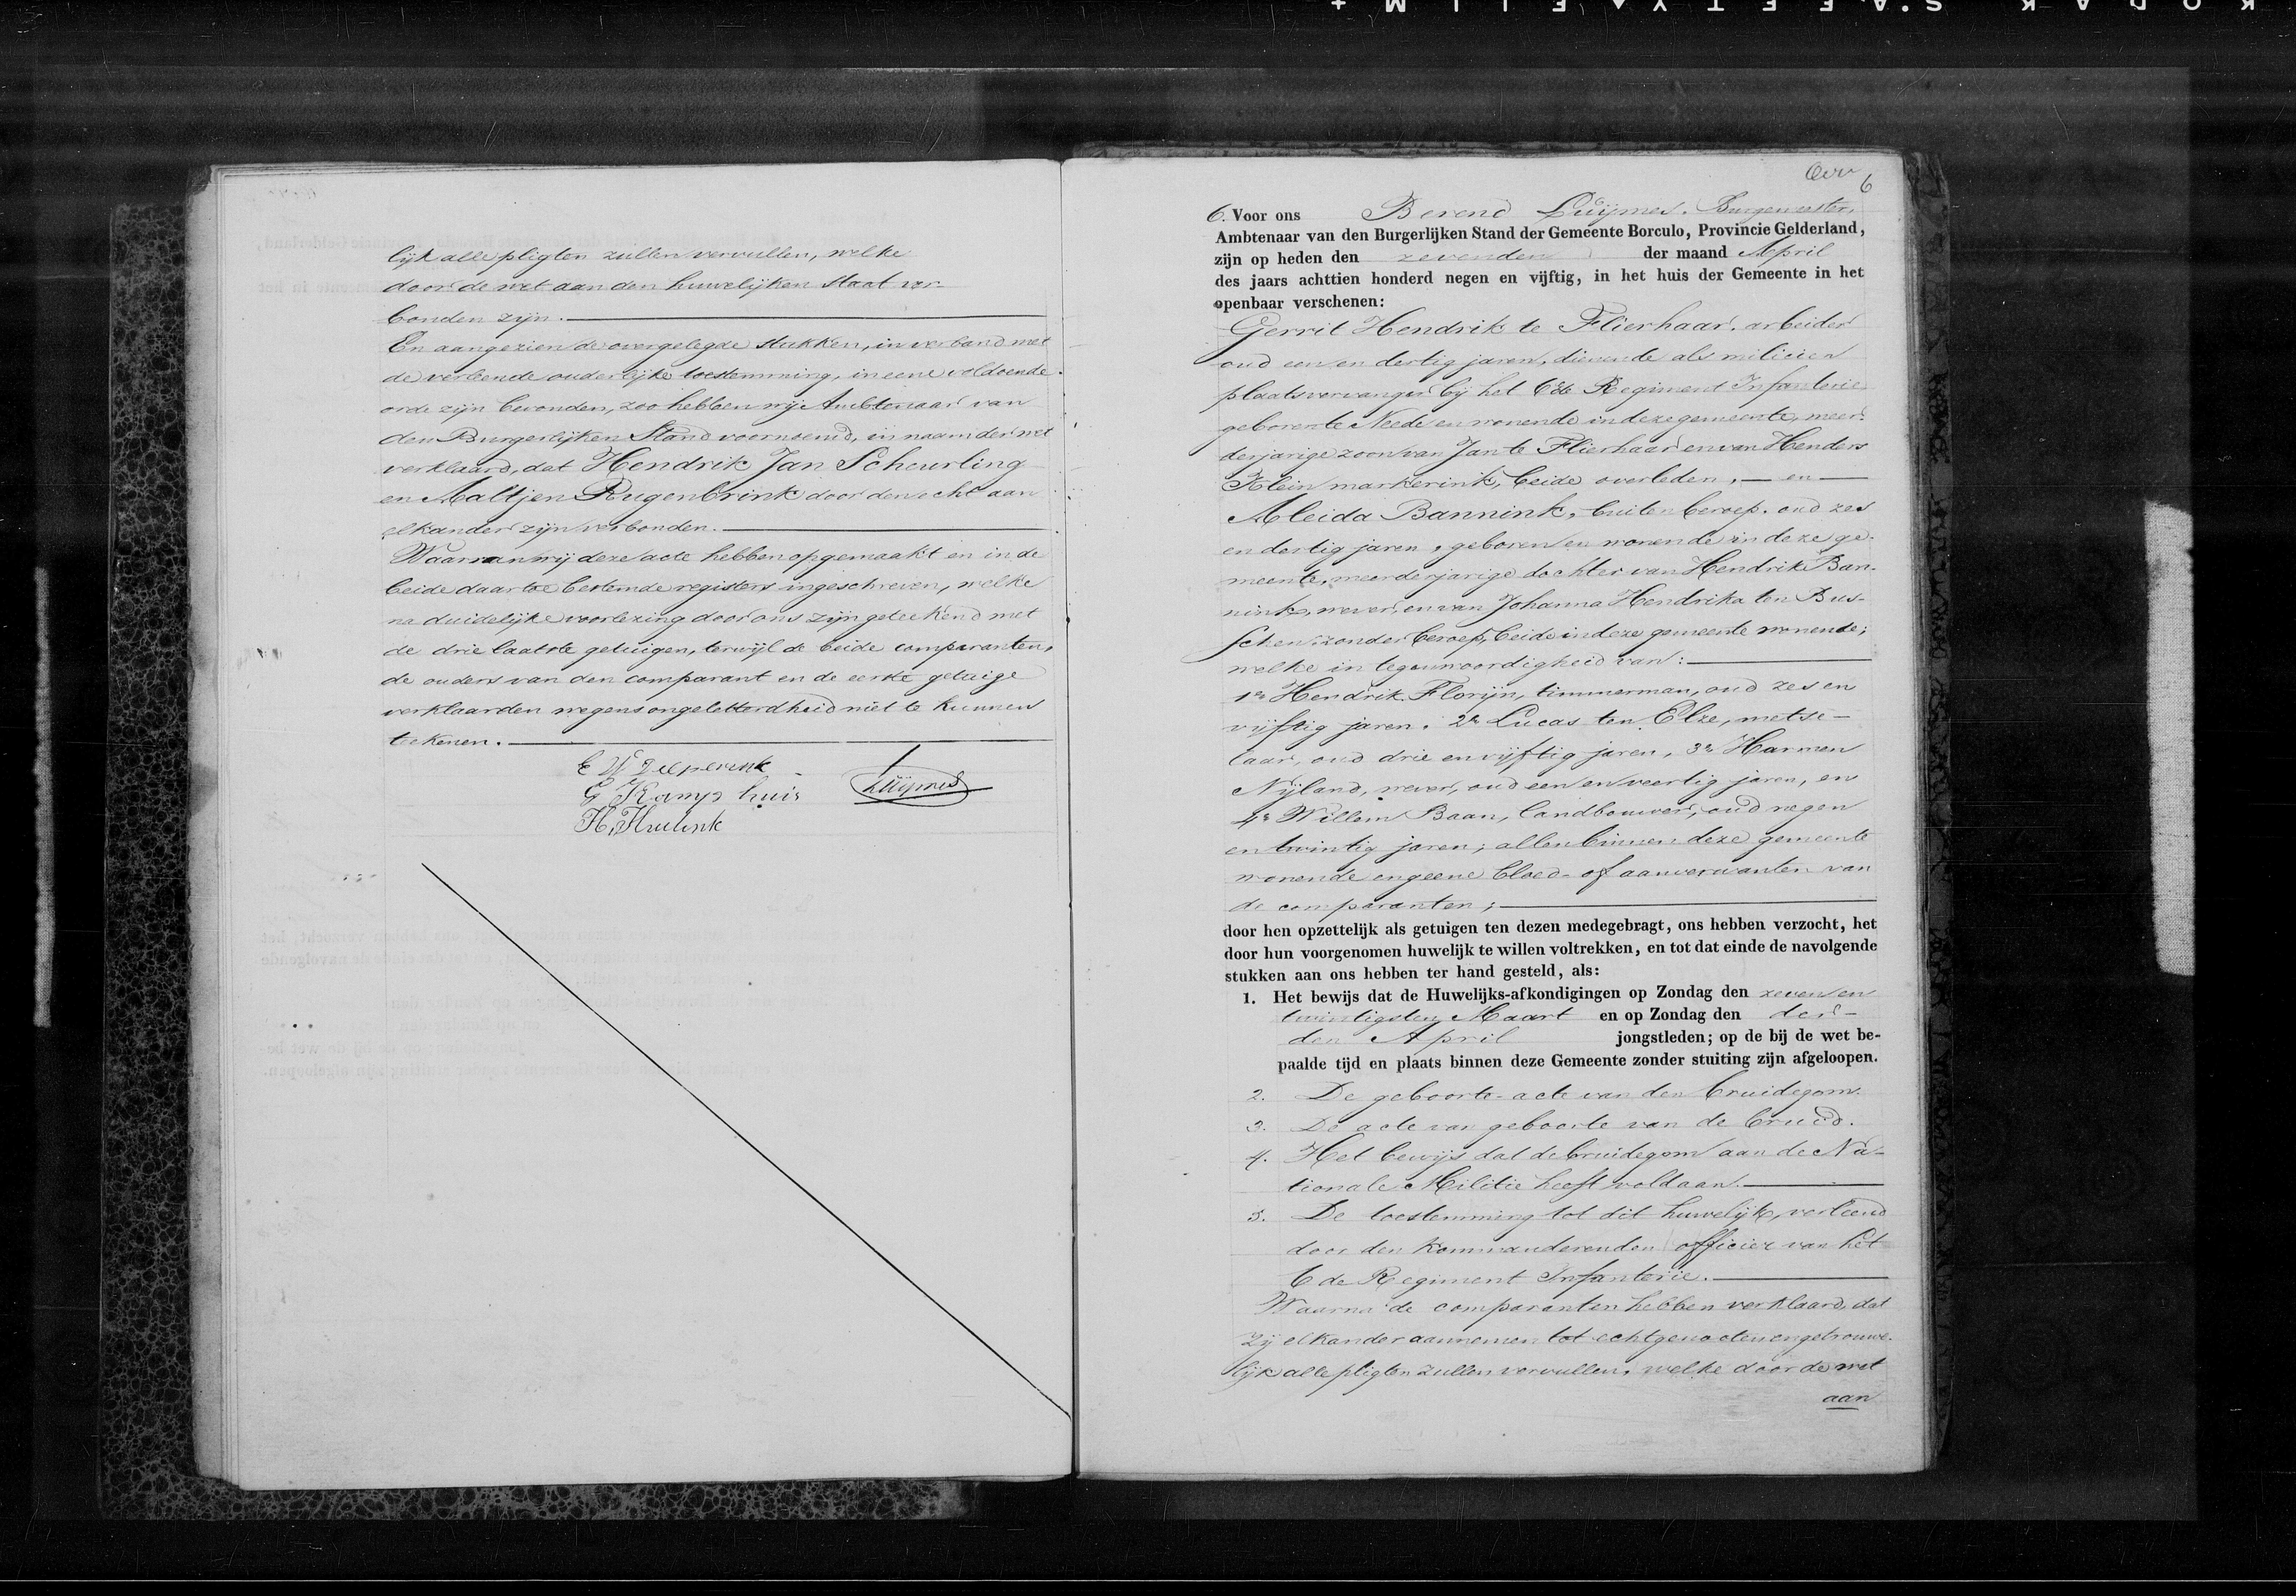 lijk alle pligten zullen vervullen, welke
door de wet aan den huwelijken staat ver-
bonden zijn.
En aangezien de overgelegde stukken, in verband met
de verleende ouderlijke toestemming, in eene voldoende
orde zijn bevonden, zoo hebben wij Ambtenaar van
den Burgerlijken Stand voornoemd, in naam der wet
verklaard, dat Hendrik Jan Scheurling
en Aaltjen Rugenbrink door den echt aan
elkander zijn verbonden.
Waarvan wij deze acte hebben opgemaakt en in de
beide daartoe bestemde registers ingeschreven, welke
na duidelijke voorlezing door ons zijn geteekend met
de drie laatste getuigen, terwijl de beide comparanten,
de ouders van den comparant en de eerste getuige
verklaarden wegens ongeletterdheid niet te kunnen
teekenen.
E W Dieperink
G Kamphuis
Luijmes
H. Hulink
6
6. Voor ons Berend Luijmes, Burgemeester,
Ambtenaar van den Burgerlijken Stand der Gemeente Borculo, Provincie Gelderland,
zijn op heden den zevenden der maand April
des jaars achttien honderd negen en vijftig, in het huis der Gemeente in het
openbaar verschenen:
Gerrit Hendrik te Flierhaar, arbeider
oud een en dertig jaren, dienende als milicien
plaatsvervanger bij het 6de Regiment Infanterie
geboren te Neede en wonende in deze gemeente, meer-
derjarige zoon van Jan te Flierhaar en van Henders
Klein markerink, beide overleden, — en —
Aleida Bannink, buiten beroep, oud zes
en dertig jaren, geboren en wonende in deze ge-
meente, meerderjarige dochter van Hendrik Ban-
nink, wever, en van Johanna Hendrika ten Bus-
schen, zonder beroep, beide in deze gemeente wonende;
welke in tegenwoordigheid van:
1e Hendrik Florijn, timmerman, oud zes en
vijftig jaren, 2e Lucas ten Elze, metse-
laar, oud drie en vijftig jaren, 3e Harmen
Nijland, wever, oud een en veertig jaren, en
4e Willem Baan, landbouwer, oud negen
en twintig jaren; allen binnen deze gemeente
wonende en geene bloed- of aanverwanten van
de comparanten;
door hen opzettelijk als getuigen ten dezen medegebragt, ons hebben verzocht, het
door hun voorgenomen huwelijk te willen voltrekken, en tot dat einde de navolgende
stukken aan ons hebben ter hand gesteld, als:
1. Het bewijs dat de Huwelijks-afkondigingen op Zondag den zeven en
twintigsten Maart en op Zondag den der-
den April jongstleden; op de bij de wet be-
paalde tijd en plaats binnen deze Gemeente zonder stuiting zijn afgeloopen.
2. De geboorte-acte van den bruidegom.
3. De acte van geboorte van de bruid.
4. Het bewijs dat de bruidegom aan de Na-
tionale Militie heeft voldaan.
5. De toestemming tot dit huwelijk, verleend
door den kommanderenden officier van het
6de Regiment Infanterie.
Waarna de comparanten hebben verklaard, dat
zij elkander aannemen tot echtgenooten en getrouwe-
lijk alle pligten zullen vervullen, welke door de wet
aan